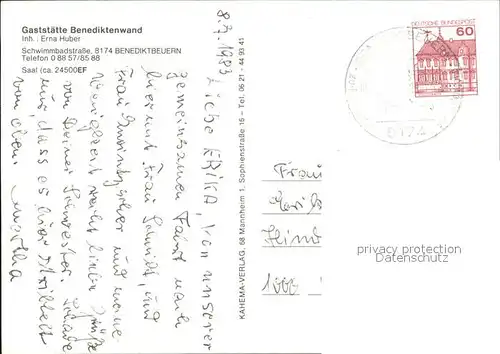 Gaststätte Benediktenwand
Inh. Erna Huber
Schwimmbadstraße, 8174 BENEDIKTBEUERN
Telefon 0 88 57/85 88
Saal (ca. 24500EF
8.7.1983
Liebe ERIKA, von unserer
gemeinsamen Fahrt nach
hier mit Frau Schmidt, und
Frau und meine
Wenigkeit recht liebe Grüße
von Deiner Schwester. Schade
nur, dass es hier
von oben. Martha
KAHEMA-VERLAG, 68 Mannheim 1, Sophienstraße 15 – Tel. 06 21 - 44 93 41
DEUTSCHE BUNDESPOST
60
8174
Frau
1000
privacy protection
Datenschutz